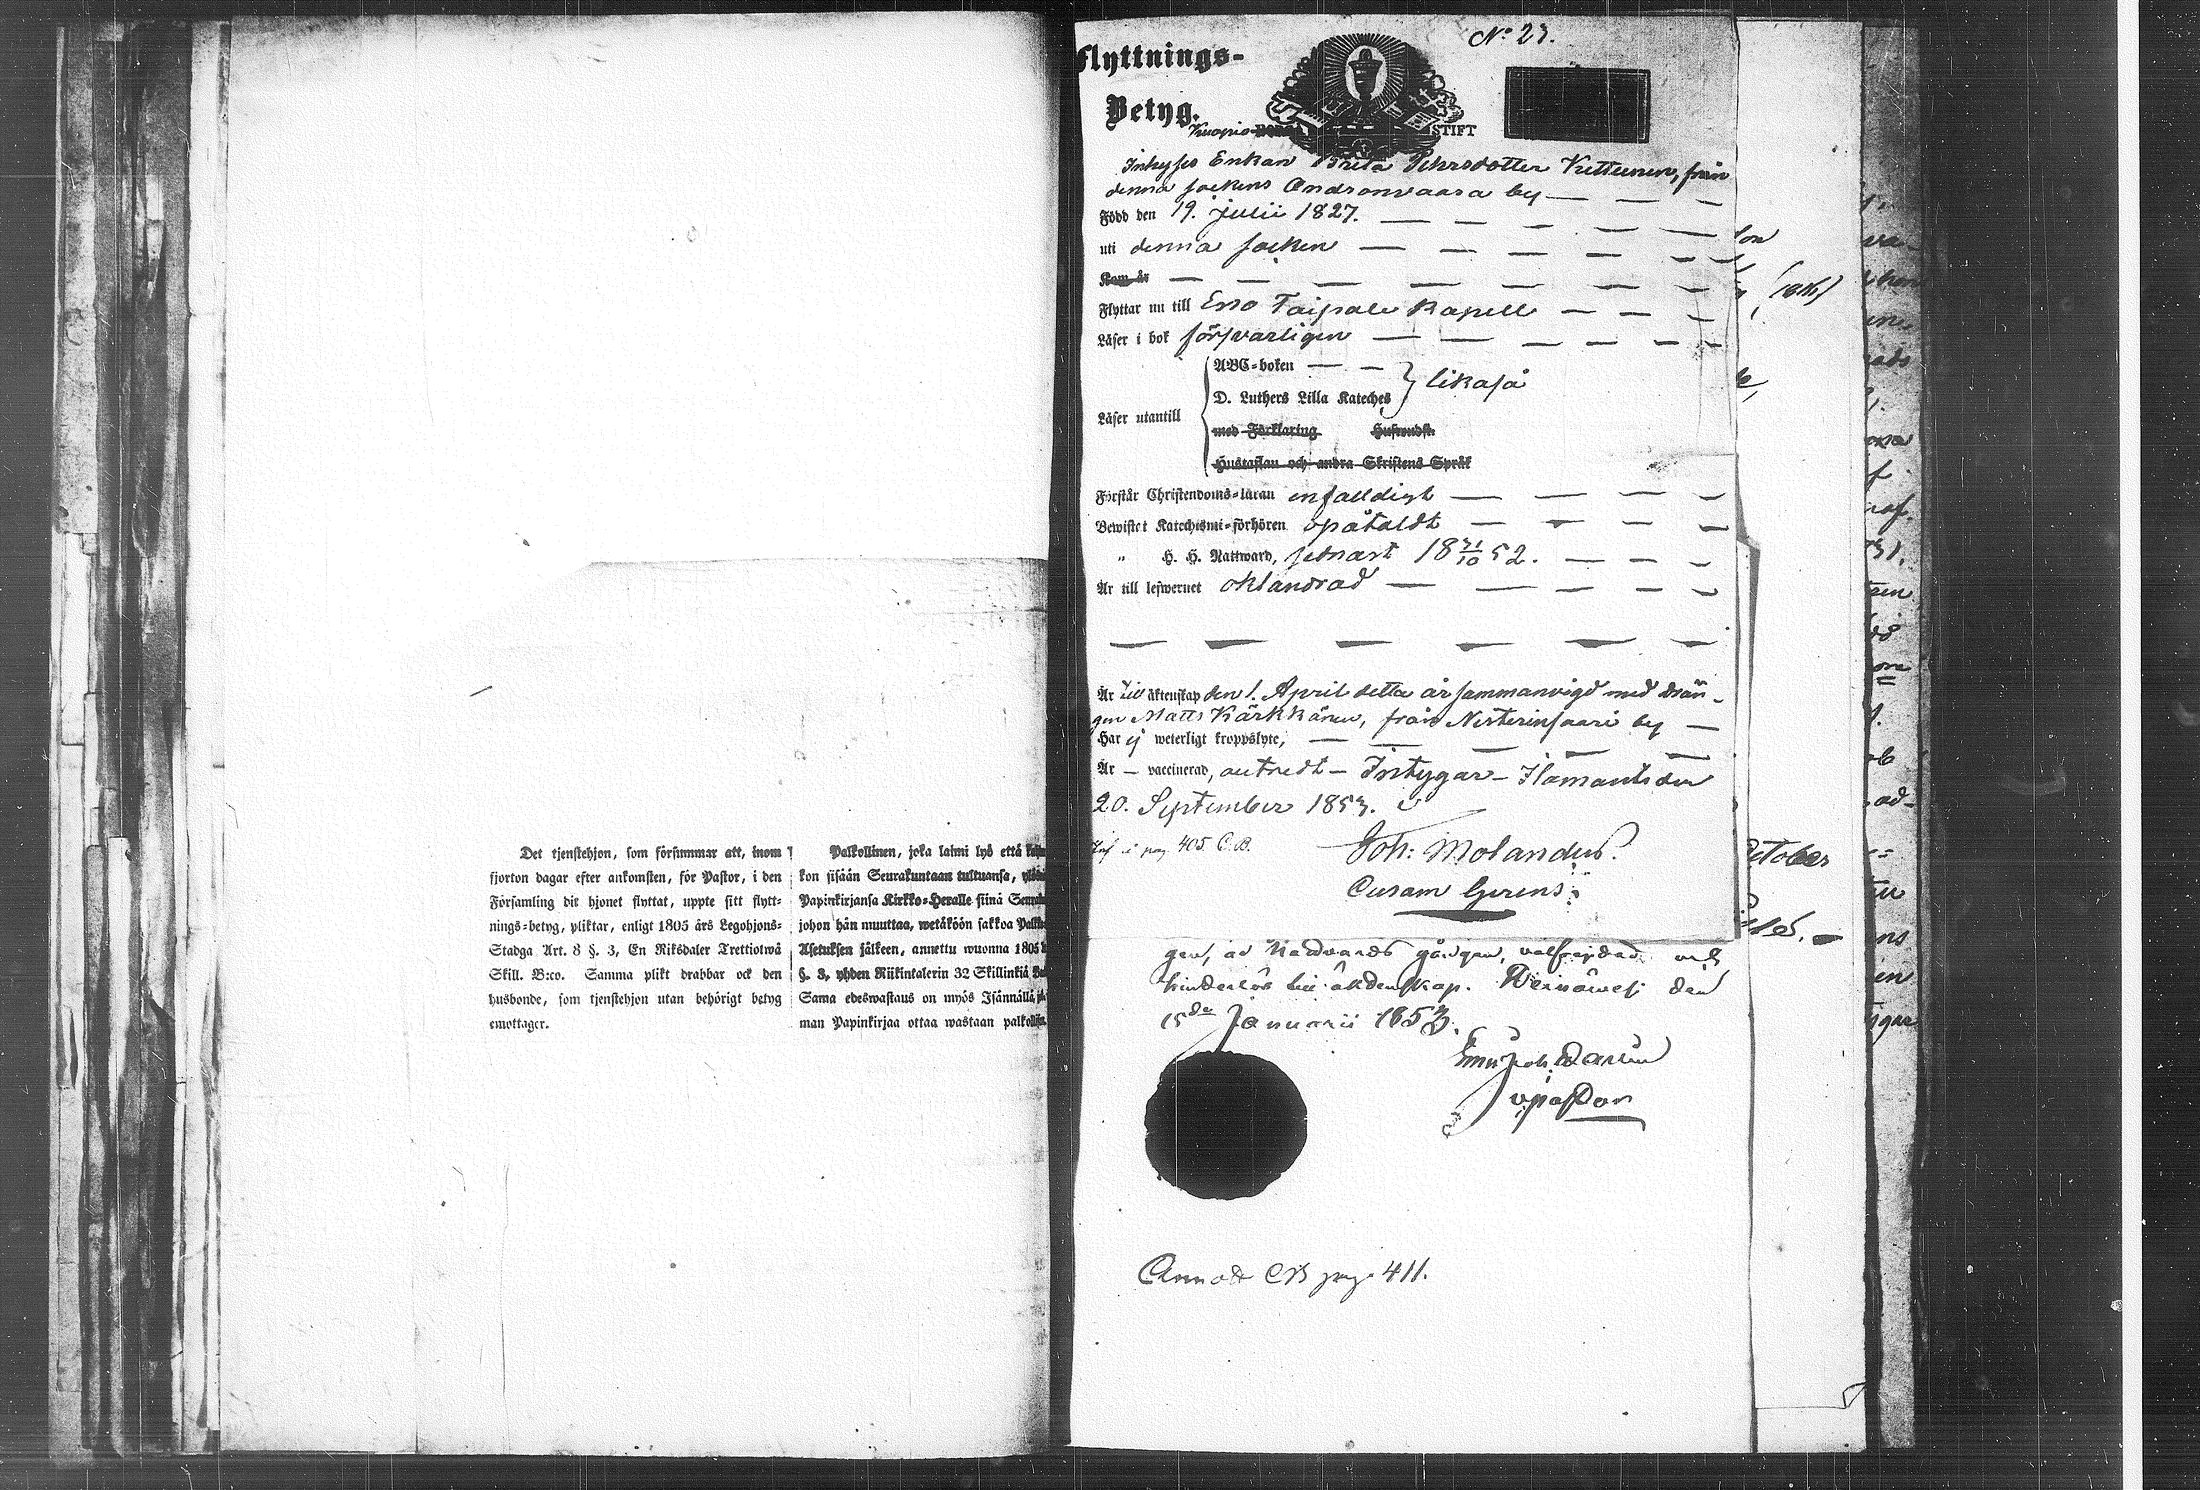 Det tjenstehjon, som försummar att, inom
fjorton dagar efter ankomsten, för Pastor, i den
Församling dit hjonet flyttat, uppte sitt flytt-
nings-betyg, pliktar, enligt 1805 års Legohjons-
Stadga Art. 8 §. 3, En Riksdaler Trettiotwå
Skill. B:co. Samma plikt drabbar ock den
husbonde, som tjenstehjon utan behörigt betyg
emottager.
Palkollinen, joka laimi lyö että
kon sisään Seurakuntaan tultuansa,
Papinkirjansa Kirkko-Heralle siinä
johon hän muuttaa, wetäköön sakkoa
Asetuksen jälkeen, annettu wuonna 1805
§. 3, yhden Riikintalerin 32 Skillinkiä
Sama edeswastaus on myös Isännällä,
man Papinkirjaa ottaa wastaan
No 23.
Flyttnings-
Betyg.
Kuopio STIFT
Inhyses Enkan Brita Pehrsdotter Kettunen, från
denna sockens Andronvaara by
Född den 19. Julii 1827.
uti denna socken
Kom år
Flyttar nu till Eno Taipale Kapell
Läser i bok försvarligen
Läser utantill
ABC-boken
D. Luthers Lilla Kateches
likaså
med Förklaring Hufwudst.
Hustaflan och andra Skriftens Språk
Förstår Christendoms-läran enfaldigt
Bewistat Katechismi-förhören opåtaldt
" H. H. Nattward, sednast 18 31/10 52.
Är till lefwernet oklandrad
Är till äktenskap den 1. April detta år sammanvigd med drän-
gen Matts Kärkkänen, från Nesterinsaari by
Har ej weterligt kroppslyte,
Är – vaccinerad, Intygar – Ilomants den
20. September 1853.
pag 405 C.B.
Joh: Molandus.
Curam Gerens.
gen, av Nattvards gången, välfrejdad och
hinderlös till äktenskap. den
15de Januarii 1853.
v pastor
Annot CB pag. 411.
October